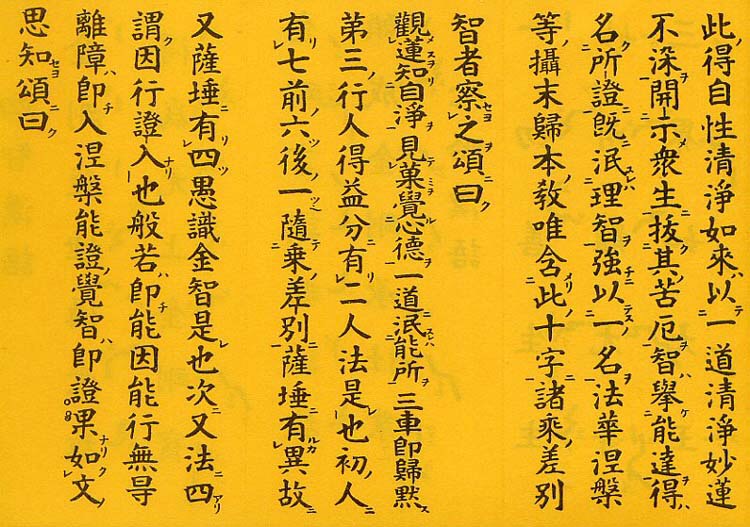 此得自性清淨如來以一道清淨妙蓮
不染開示衆生拔其苦厄智擧能達得
名所證旣泯理智強以一名法華涅槃
等攝末歸本敎唯含此十字諸乘差別
智者察之頌曰
觀蓮知自淨見菓覺心德一道泯能所三車卽歸黙
第三行人得益分有二人法是也初人
有七前六後一隨乘差別薩埵有異故
又薩埵有四愚識金智是也次又法四
謂因行證入也般若卽能因能行無㝵
離障卽入涅槃能證覺智卽證果如文
思知頌曰